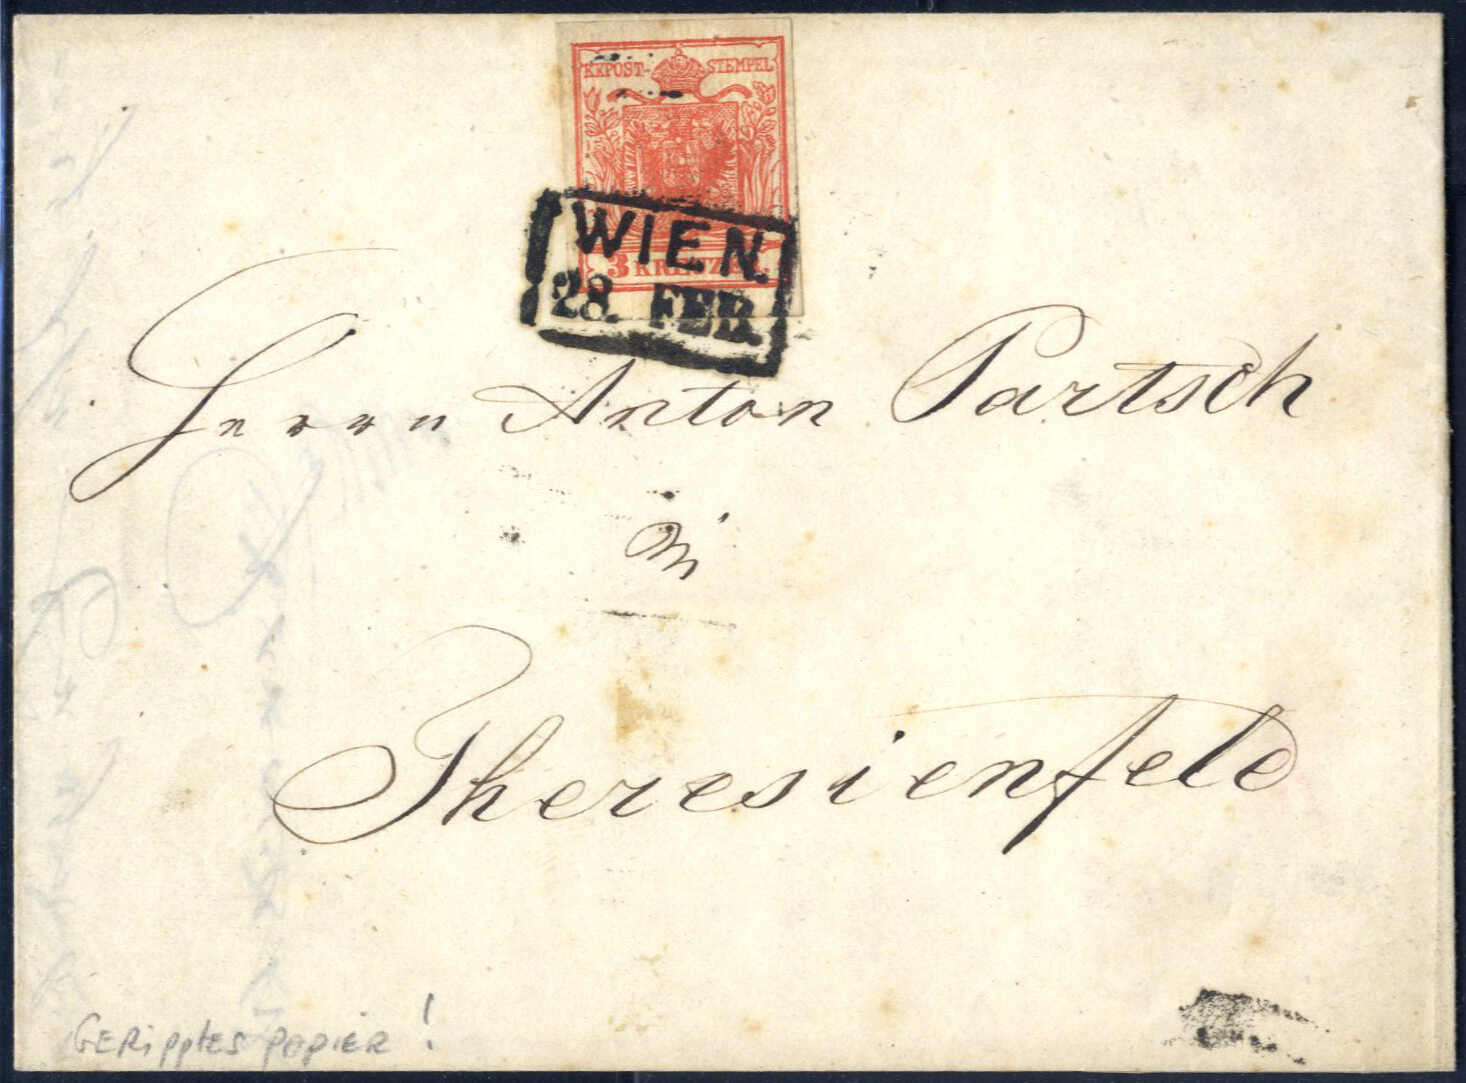 KKPOST- STEMPEL
3 KREUZER.
WIEN.
28. FEB.
Herrn Anton Partsch
in
Theresienfeld
GERipptes PAPiER !